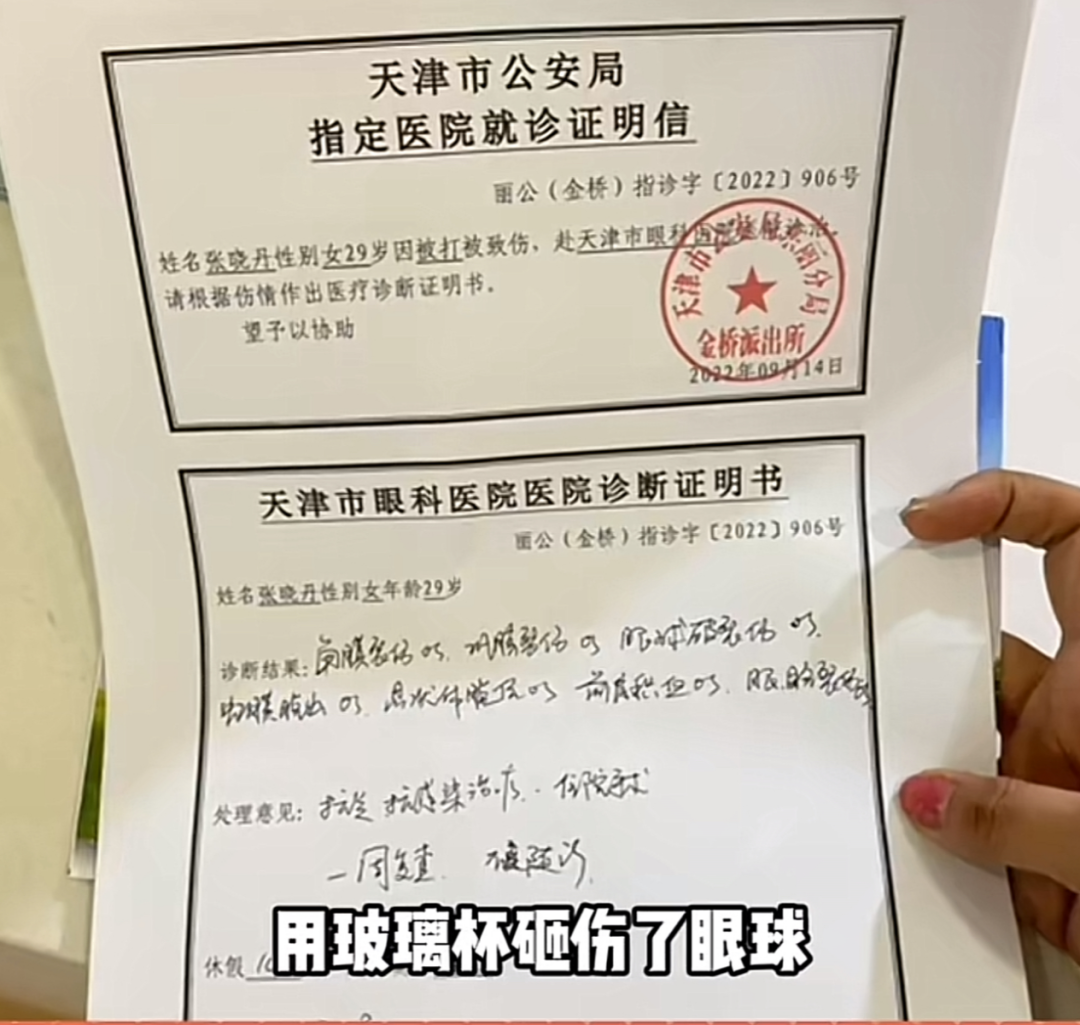 天津市公安局
指定医院就诊证明信
丽公（金桥）指诊字〔2022〕906号
姓名张晓丹性别女29岁因被打被致伤，赴天津市眼科医院医院诊治。
请根据伤情作出医疗诊断证明书。
望予以协助
天津市公安局东丽分局
金桥派出所
2022年09月14日
天津市眼科医院医院诊断证明书
丽公（金桥）指诊字〔2022〕906号
姓名张晓丹性别女年龄29岁
诊断结果：角膜裂伤 os、巩膜裂伤 os 眼球破裂伤 os、
脱出 os、晶状体脱位 os 前房积血 os、眼睑裂伤
处理意见：抗炎 抗感染治疗、住院手术
一周复查 不适随诊
休假
用玻璃杯砸伤了眼球